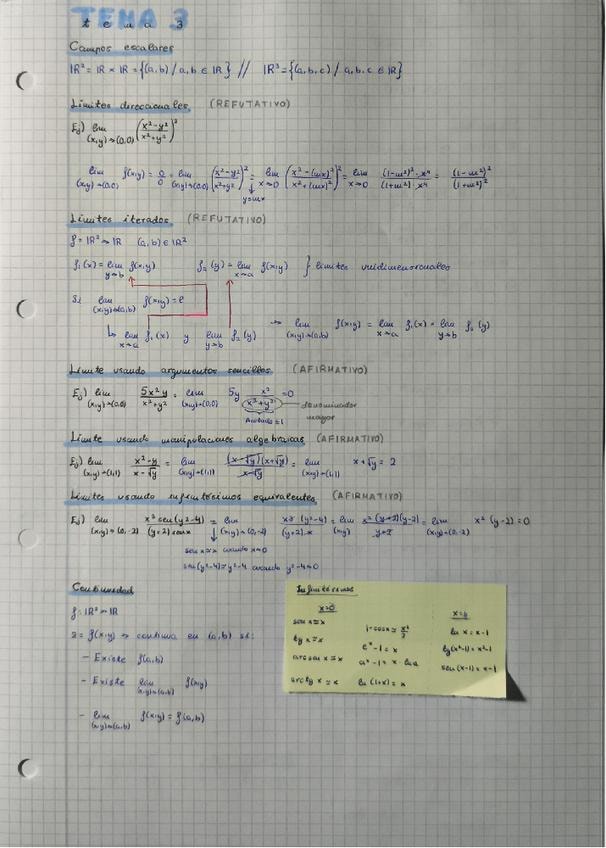 TEMA 3
tema 3
Campos escalares
IR² = IR × IR = {(a,b) / a,b ∈ IR} // IR³ = {(a,b,c) / a,b,c ∈ IR}
Límites direccionales (REFUTATIVO)
Ej) lim (x,y)→(0,0) (x²-y²/x²+y²)²
lim (x,y)→(0,0) f(x,y) = 0/0 = lim (x,y)→(0,0) (x²-y²/x²+y²)² = lim x→0 (x²-(mx)²/x²+(mx)²)² = lim x→0 (1-m²)²·x⁴/(1+m²)²·x⁴ = (1-m²)²/(1+m²)²
y=mx
Límites iterados (REFUTATIVO)
f: IR² → IR (a,b) ∈ IR²
f₁(x) = lim y→b f(x,y) f₂(y) = lim x→a f(x,y) } límites unidimensionales
Si lim (x,y)→(a,b) f(x,y) = l
↳ lim x→a f₁(x) y lim y→b f₂(y) → lim (x,y)→(a,b) f(x,y) = lim x→a f₁(x) = lim y→b f₂(y)
Límite usando argumentos sencillos (AFIRMATIVO)
Ej) lim (x,y)→(0,0) 5x²y/x²+y² = lim (x,y)→(0,0) 5y x²/x²+y² = 0
denominador mayor
Acotado ≤ 1
Límite usando manipulaciones algebraicas (AFIRMATIVO)
Ej) lim (x,y)→(1,1) x²-y/x-√y = lim (x,y)→(1,1) (x-√y)(x+√y)/x-√y = lim (x,y)→(1,1) x+√y = 2
Límites usando infinitésimos equivalentes (AFIRMATIVO)
Ej) lim (x,y)→(0,-2) x³ sen(y²-4)/(y+2) senx = lim (x,y)→(0,-2) x³ (y²-4)/(y+2)·x = lim (x,y) x²(y+2)(y-2)/y+2 = lim (x,y)→(0,-2) x² (y-2) = 0
sen x ≈ x cuando x→0
sen(y²-4) ≈ y²-4 cuando y²-4→0
Continuidad
f: IR² → IR
z = f(x,y) → continua en (a,b) si:
- Existe f(a,b)
- Existe lim (x,y)→(a,b) f(x,y)
- lim (x,y)→(a,b) f(x,y) = f(a,b)
Infinitésimos
x→0
sen x ≈ x
tg x ≈ x
arc sen x ≈ x
arc tg x ≈ x
1-cosx ≈ x²/2
eˣ-1 ≈ x
aˣ-1 ≈ x·ln a
ln (1+x) ≈ x
ln x ≈ x-1
tg(x²-1) ≈ x²-1
sen (x-1) ≈ x-1